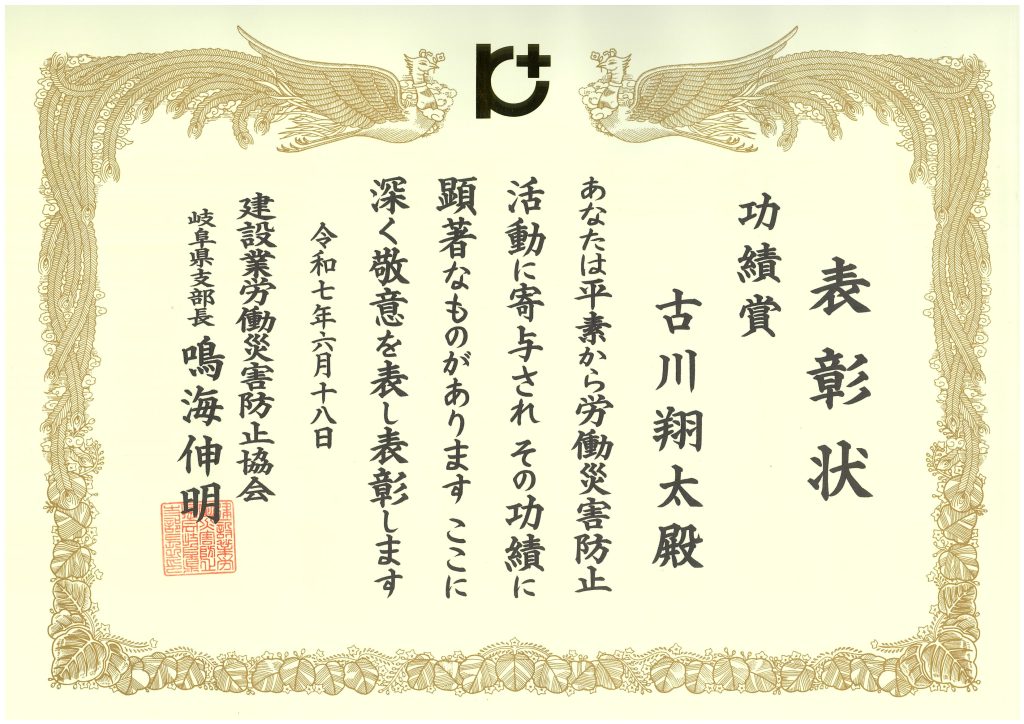 表彰状
功績賞
古川翔太殿
あなたは平素から労働災害防止
活動に寄与され その功績に
顕著なものがあります ここに
深く敬意を表し表彰します
令和七年六月十八日
建設業労働災害防止協会
岐阜県支部長 鳴海伸明